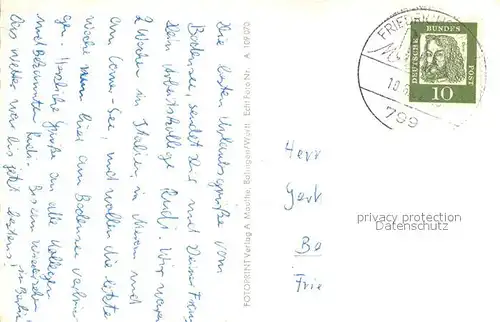 Die besten Urlaubsgrüße vom
Bodensee, sendet Dir und Deiner Frau
Dein Arbeitskollege Rudi. Wir waren
2 Wochen in Italien, in Meran und
am Comer-See, und wollen die letzte
Woche nun hier am Bodensee verbrin-
gen. Herzliche Grüße an alle Kollegen
und Bekannten Rudi. Bis zum Wiedersehen
in Berlin!
Das Wetter war bis jetzt bestens!
FOTOPRINT Verlag A. Mauthe, Balingen/Württ. Edit Foto Nr. A 109070
FRIEDRICH
10
799
BUNDES
DEUTSCHE
POST
10
Herr
Gert
Be
Frie
privacy protection
Datenschutz